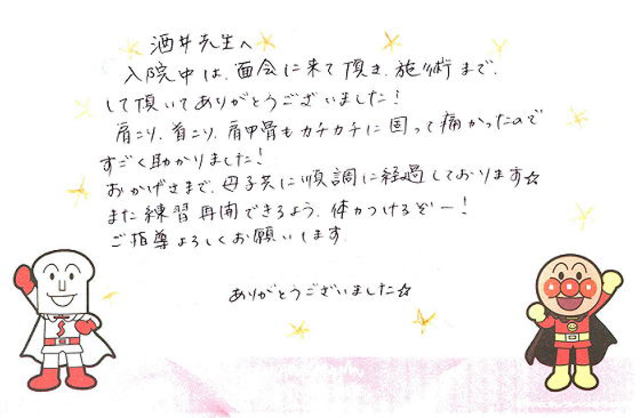 酒井先生へ
入院中は、面会に来て頂き、施術まで、
して頂いてありがとうございました!
肩こり、首こり、肩甲骨もカチカチに固って痛かったので
すごく助かりました!
おかげさまで、母子共に順調に経過しております☆
また練習再開できるよう、体力つけるぞー!
ご指導よろしくお願いします。
ありがとうございました☆
S